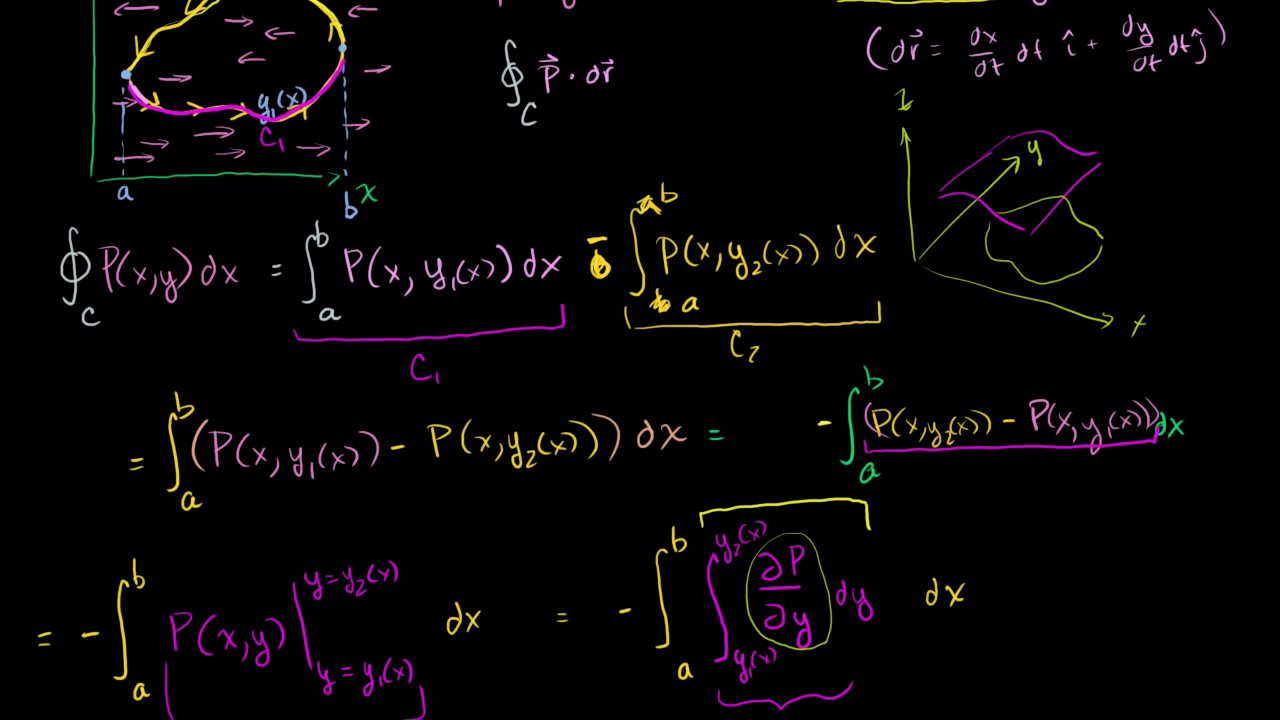 ∮_C P⃗ · dr⃗
(dr⃗ = dx/dt dt î + dy/dt dt ĵ)
y₁(x)
C₁
a
b
x
z
y
x
∮_C P(x,y) dx = ∫_a^b P(x, y₁(x)) dx - ∫_a^b P(x, y₂(x)) dx
C₁
C₂
= ∫_a^b (P(x, y₁(x)) - P(x, y₂(x))) dx = - ∫_a^b (P(x, y₂(x)) - P(x, y₁(x))) dx
= - ∫_a^b P(x,y) |_{y = y₁(x)}^{y = y₂(x)} dx = - ∫_a^b ∫_{y₁(x)}^{y₂(x)} ∂P/∂y dy dx